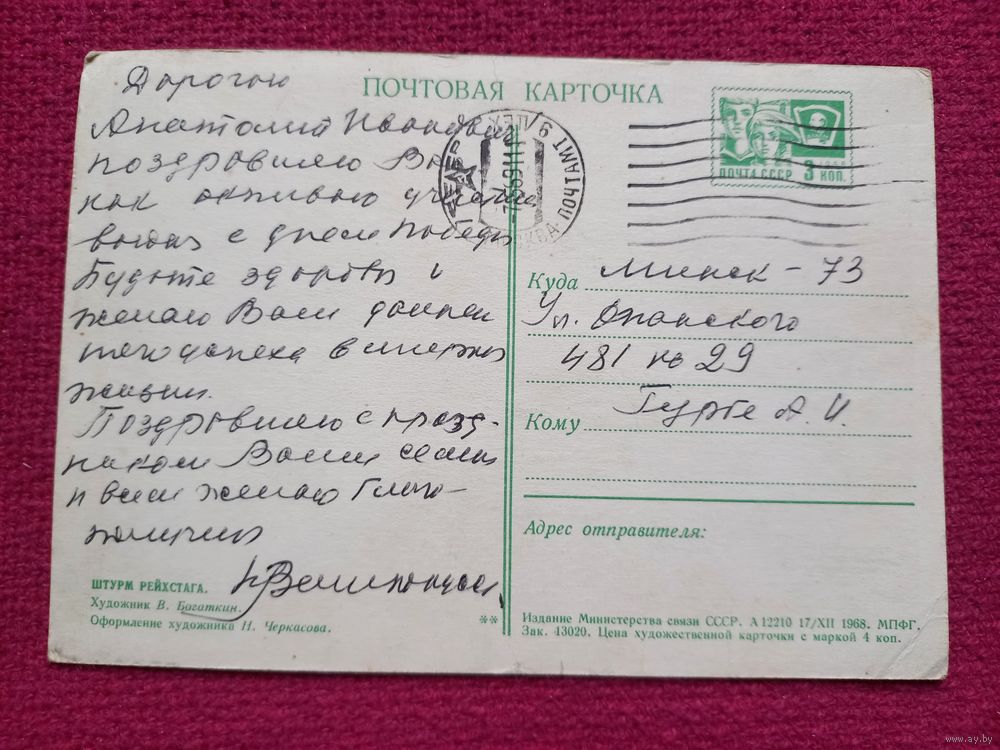 ПОЧТОВАЯ КАРТОЧКА
Дорогой
Анатолий Иванович
поздравляю Вас
как активого
с днем Победы
Будьте здоровы и
желаю Вам
успеха в мирной
жизни.
Поздравляю с празд-
ником Вашу семью
и всем желаю благо-
получия
ПОЧТА СССР 3 КОП.
Куда Минск - 73
Ул. Опанского
481 кв 29
Кому Гурбе А. И.
Адрес отправителя:
ШТУРМ РЕЙХСТАГА.
Художник В. Богаткин.
Оформление художника Н. Черкасова.
**
Издание Министерства связи СССР. А 12210 17/XII 1968. МПФГ.
Зак. 43020. Цена художественной карточки с маркой 4 коп.
www.ay.by